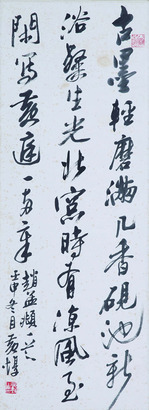 古墨輕磨滿几香硯池新
浴燦生光北窗時有涼風至
閑寫黃庭一兩章
趙孟頫一首
壬申冬日黃惇